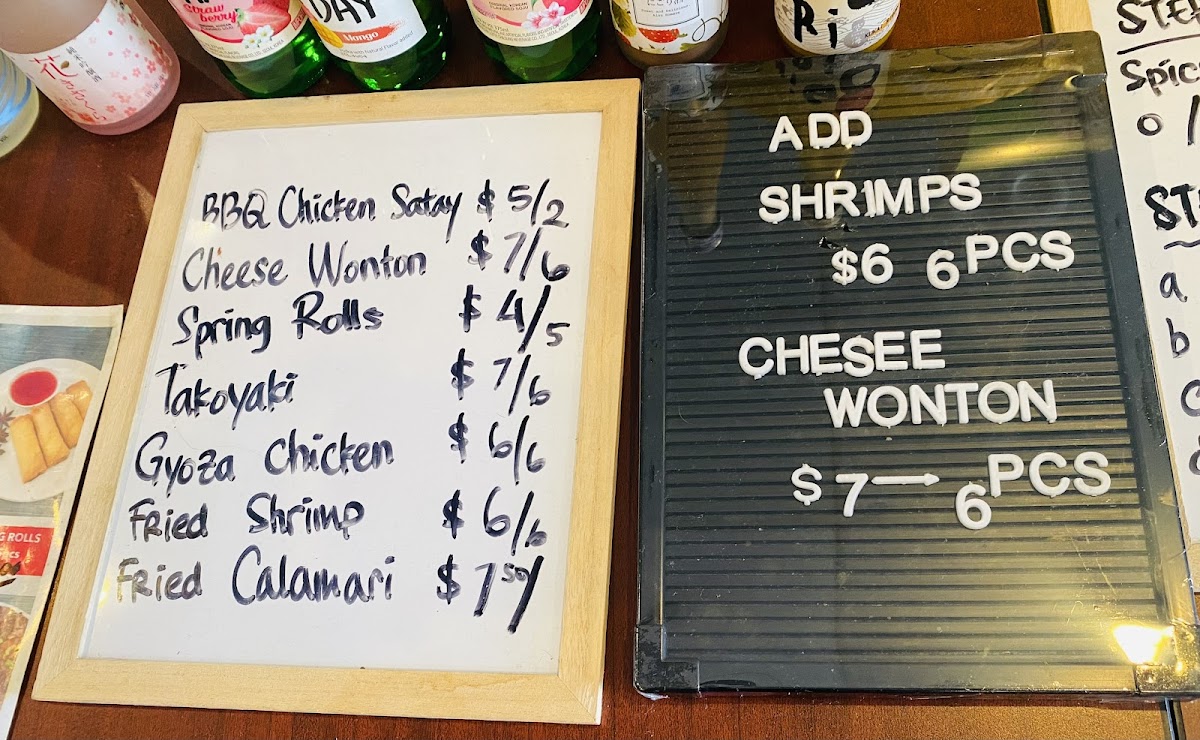 Strawberry
DAY
Mango
Ri
BBQ Chicken Satay $ 5/2
Cheese Wonton $ 7/6
Spring Rolls $ 4/5
Takoyaki $ 7/6
Gyoza Chicken $ 6/6
Fried Shrimp $ 6/6
Fried Calamari $ 7.50/
ADD
SHRIMPS
$6 6PCS
CHESEE
WONTON
$ 7→ 6PCS
ROLLS
a
b